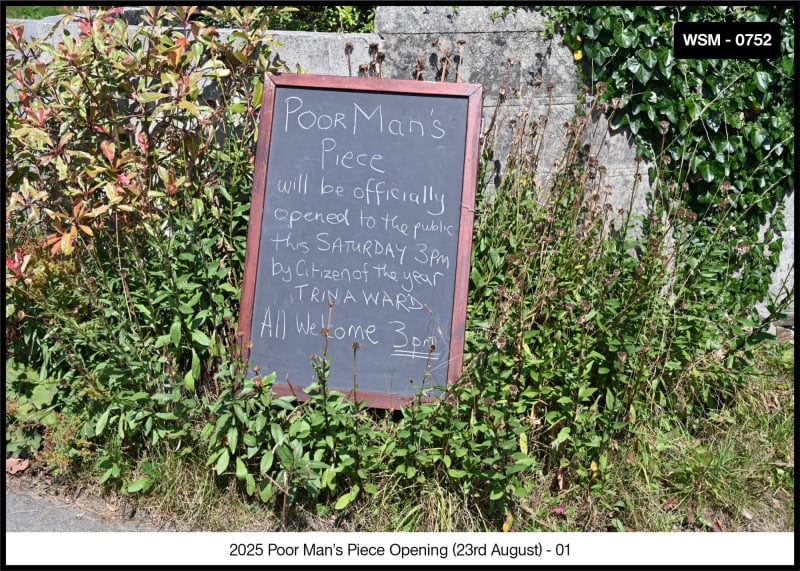 WSM - 0752
Poor Man's
Piece
will be officially
opened to the public
this SATURDAY 3pm
by Citizen of the year
TRINA WARD
All Welcome 3pm
2025 Poor Man's Piece Opening (23rd August) - 01